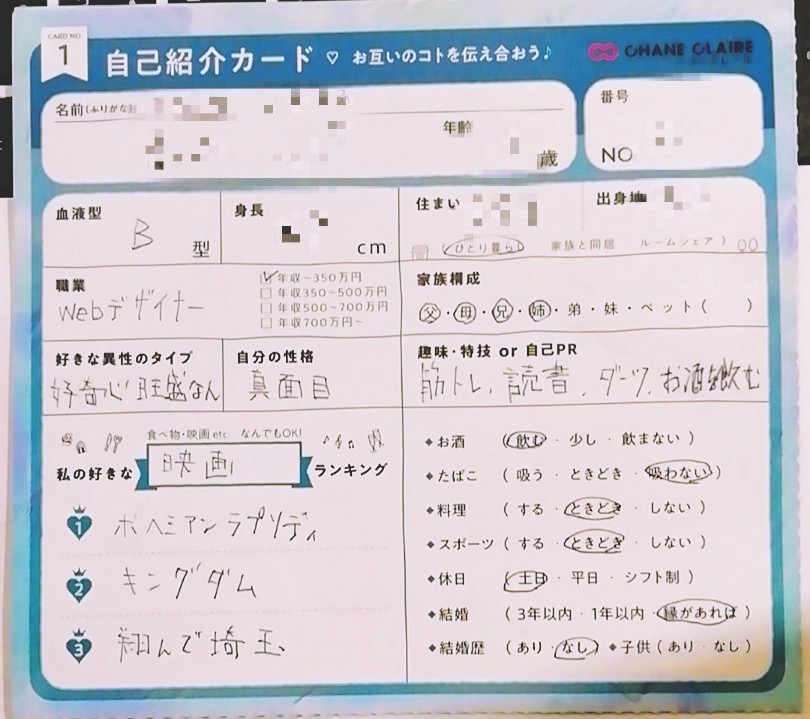 CARD NO
1
自己紹介カード ♡ お互いのコトを伝え合おう♪
CHANE CLAIRE
名前(ふりがな)
年齢
歳
番号
NO
血液型
B 型
身長
cm
住まい
(ひとり暮らし 家族と同居 ルームシェア)
出身地
職業
Webデザイナー
✓年収~350万円
□年収350~500万円
□年収500~700万円
□年収700万円~
家族構成
父・母・兄・姉・弟・妹・ペット( )
好きな異性のタイプ
好奇心旺盛なん
自分の性格
真面目
趣味・特技 or 自己PR
筋トレ、読書、ダーツ、お酒を飲む
食べ物・映画 etc…なんでもOK!
私の好きな 映画 ランキング
1 ボヘミアンラプソディ
2 キングダム
3 翔んで埼玉
◆お酒 (飲む・少し・飲まない)
◆たばこ (吸う・ときどき・吸わない)
◆料理 (する・ときどき・しない)
◆スポーツ (する・ときどき・しない)
◆休日 (土日・平日・シフト制)
◆結婚 (3年以内・1年以内・縁があれば)
◆結婚歴 (あり・なし) ◆子供 (あり・なし)